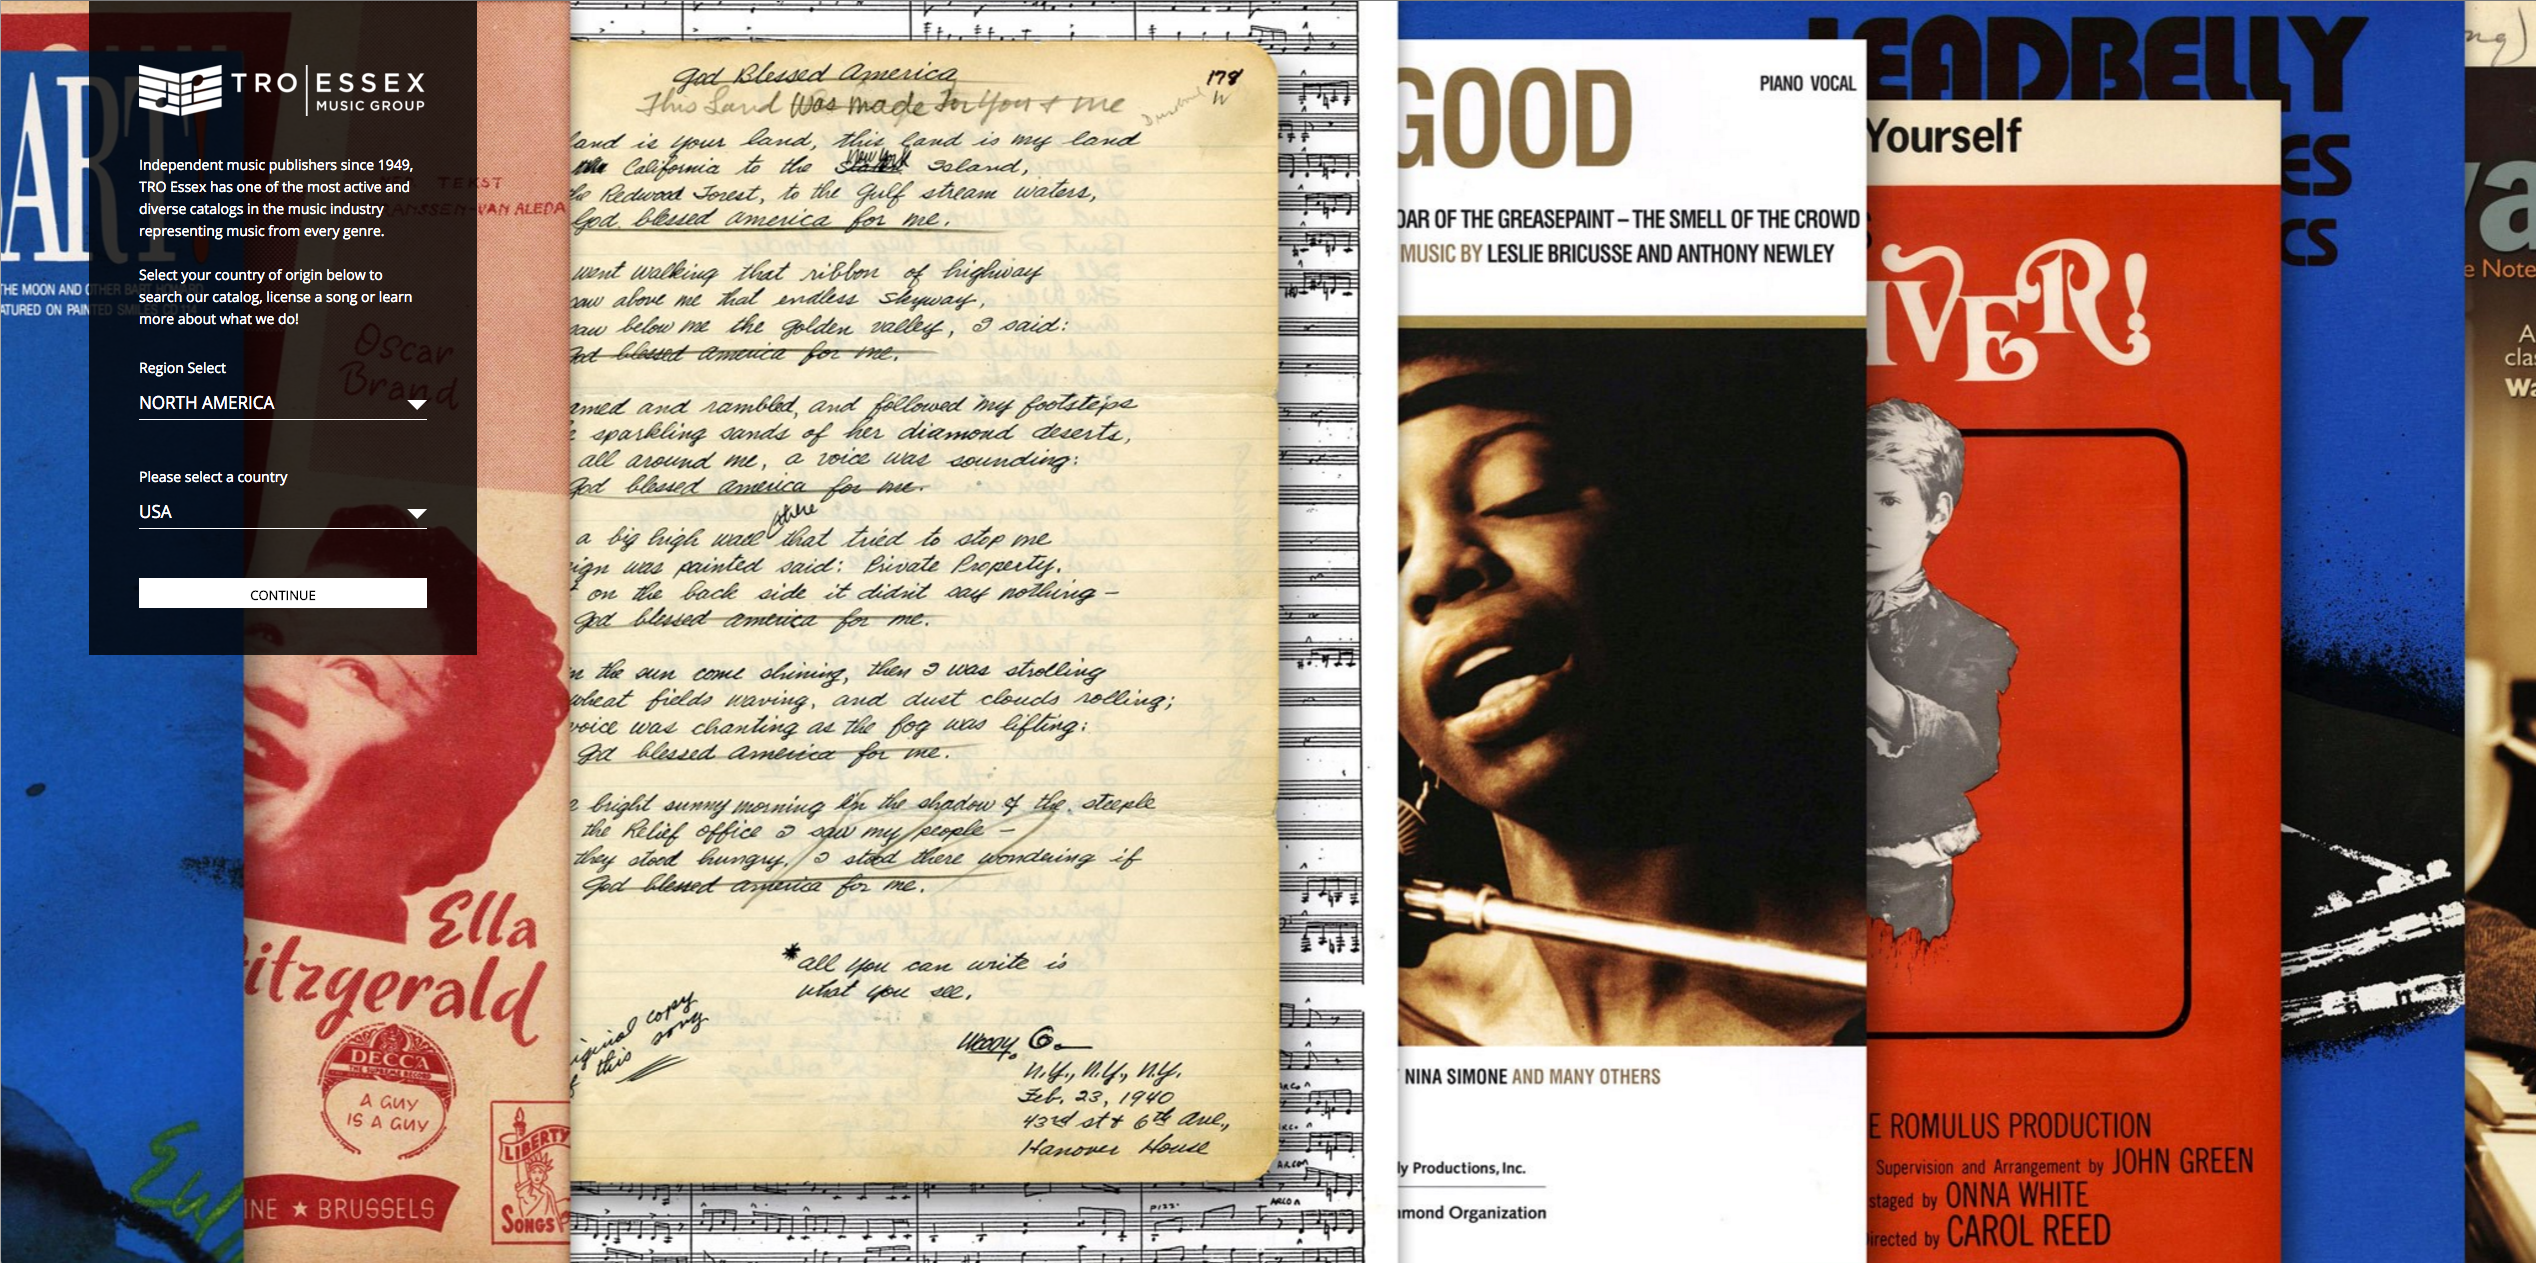 TRO ESSEX
MUSIC GROUP
Independent music publishers since 1949,
TRO Essex has one of the most active and
diverse catalogs in the music industry
representing music from every genre.
Select your country of origin below to
search our catalog, license a song or learn
more about what we do!
Region Select
NORTH AMERICA
Please select a country
USA
CONTINUE
ART!
THE MOON AND OTHER BART HOWARD
ATURED ON PAINTED SMILES CD
TEKST
ANSSEN-VAN ALEDA
Oscar
Brand
Ella
itzgerald
DECCA
THE SUPREME RECORD
A GUY
IS A GUY
INE ★ BRUSSELS
LIBERTY
SONGS
God Blessed America
This Land Was made For You & me
178
W
land is your land, this land is my land
California to the New York Island,
he Redwood Forest, to the Gulf stream waters,
God blessed america for me.
went walking that ribbon of highway
saw above me that endless skyway,
saw below me the golden valley, I said:
God blessed america for me.
amed and rambled, and followed my footsteps
e sparkling sands of her diamond deserts,
all around me, a voice was sounding:
God blessed america for me.
there
a big high wall that tried to stop me
ign was painted said: Private Property.
on the back side it didn't say nothing -
God blessed america for me.
n the sun come shining, then I was strolling
wheat fields waving, and dust clouds rolling;
voice was chanting as the fog was lifting:
God blessed america for me.
e bright sunny morning in the shadow of the steeple
the Relief office I saw my people -
they stood hungry, I stood there wondering if
God blessed america for me.
*all you can write is
what you see.
iginal copy
f this song
Woody G.
N.Y., N.Y., N.Y.
Feb. 23, 1940
43rd st & 6th Ave.,
Hanover House
ARCO
ARCO
PIZZ.
GOOD
PIANO VOCAL
OAR OF THE GREASEPAINT – THE SMELL OF THE CROWD
MUSIC BY LESLIE BRICUSSE AND ANTHONY NEWLEY
NINA SIMONE AND MANY OTHERS
ly Productions, Inc.
mond Organization
Yourself
IVER!
E ROMULUS PRODUCTION
Supervision and Arrangement by JOHN GREEN
staged by ONNA WHITE
irected by CAROL REED
LEADBELLY
ES
CS
ng)
va
e Note
A
clas
Wa